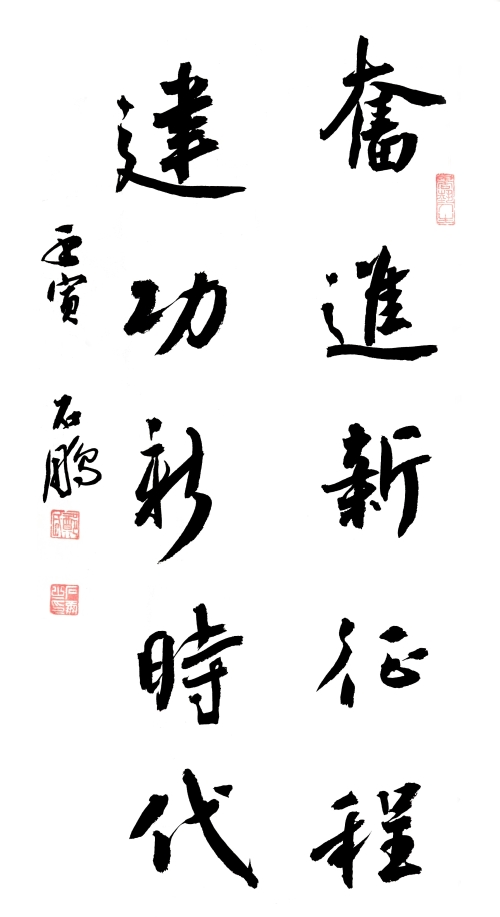 奮進新征程
建功新時代
壬寅 石鵬